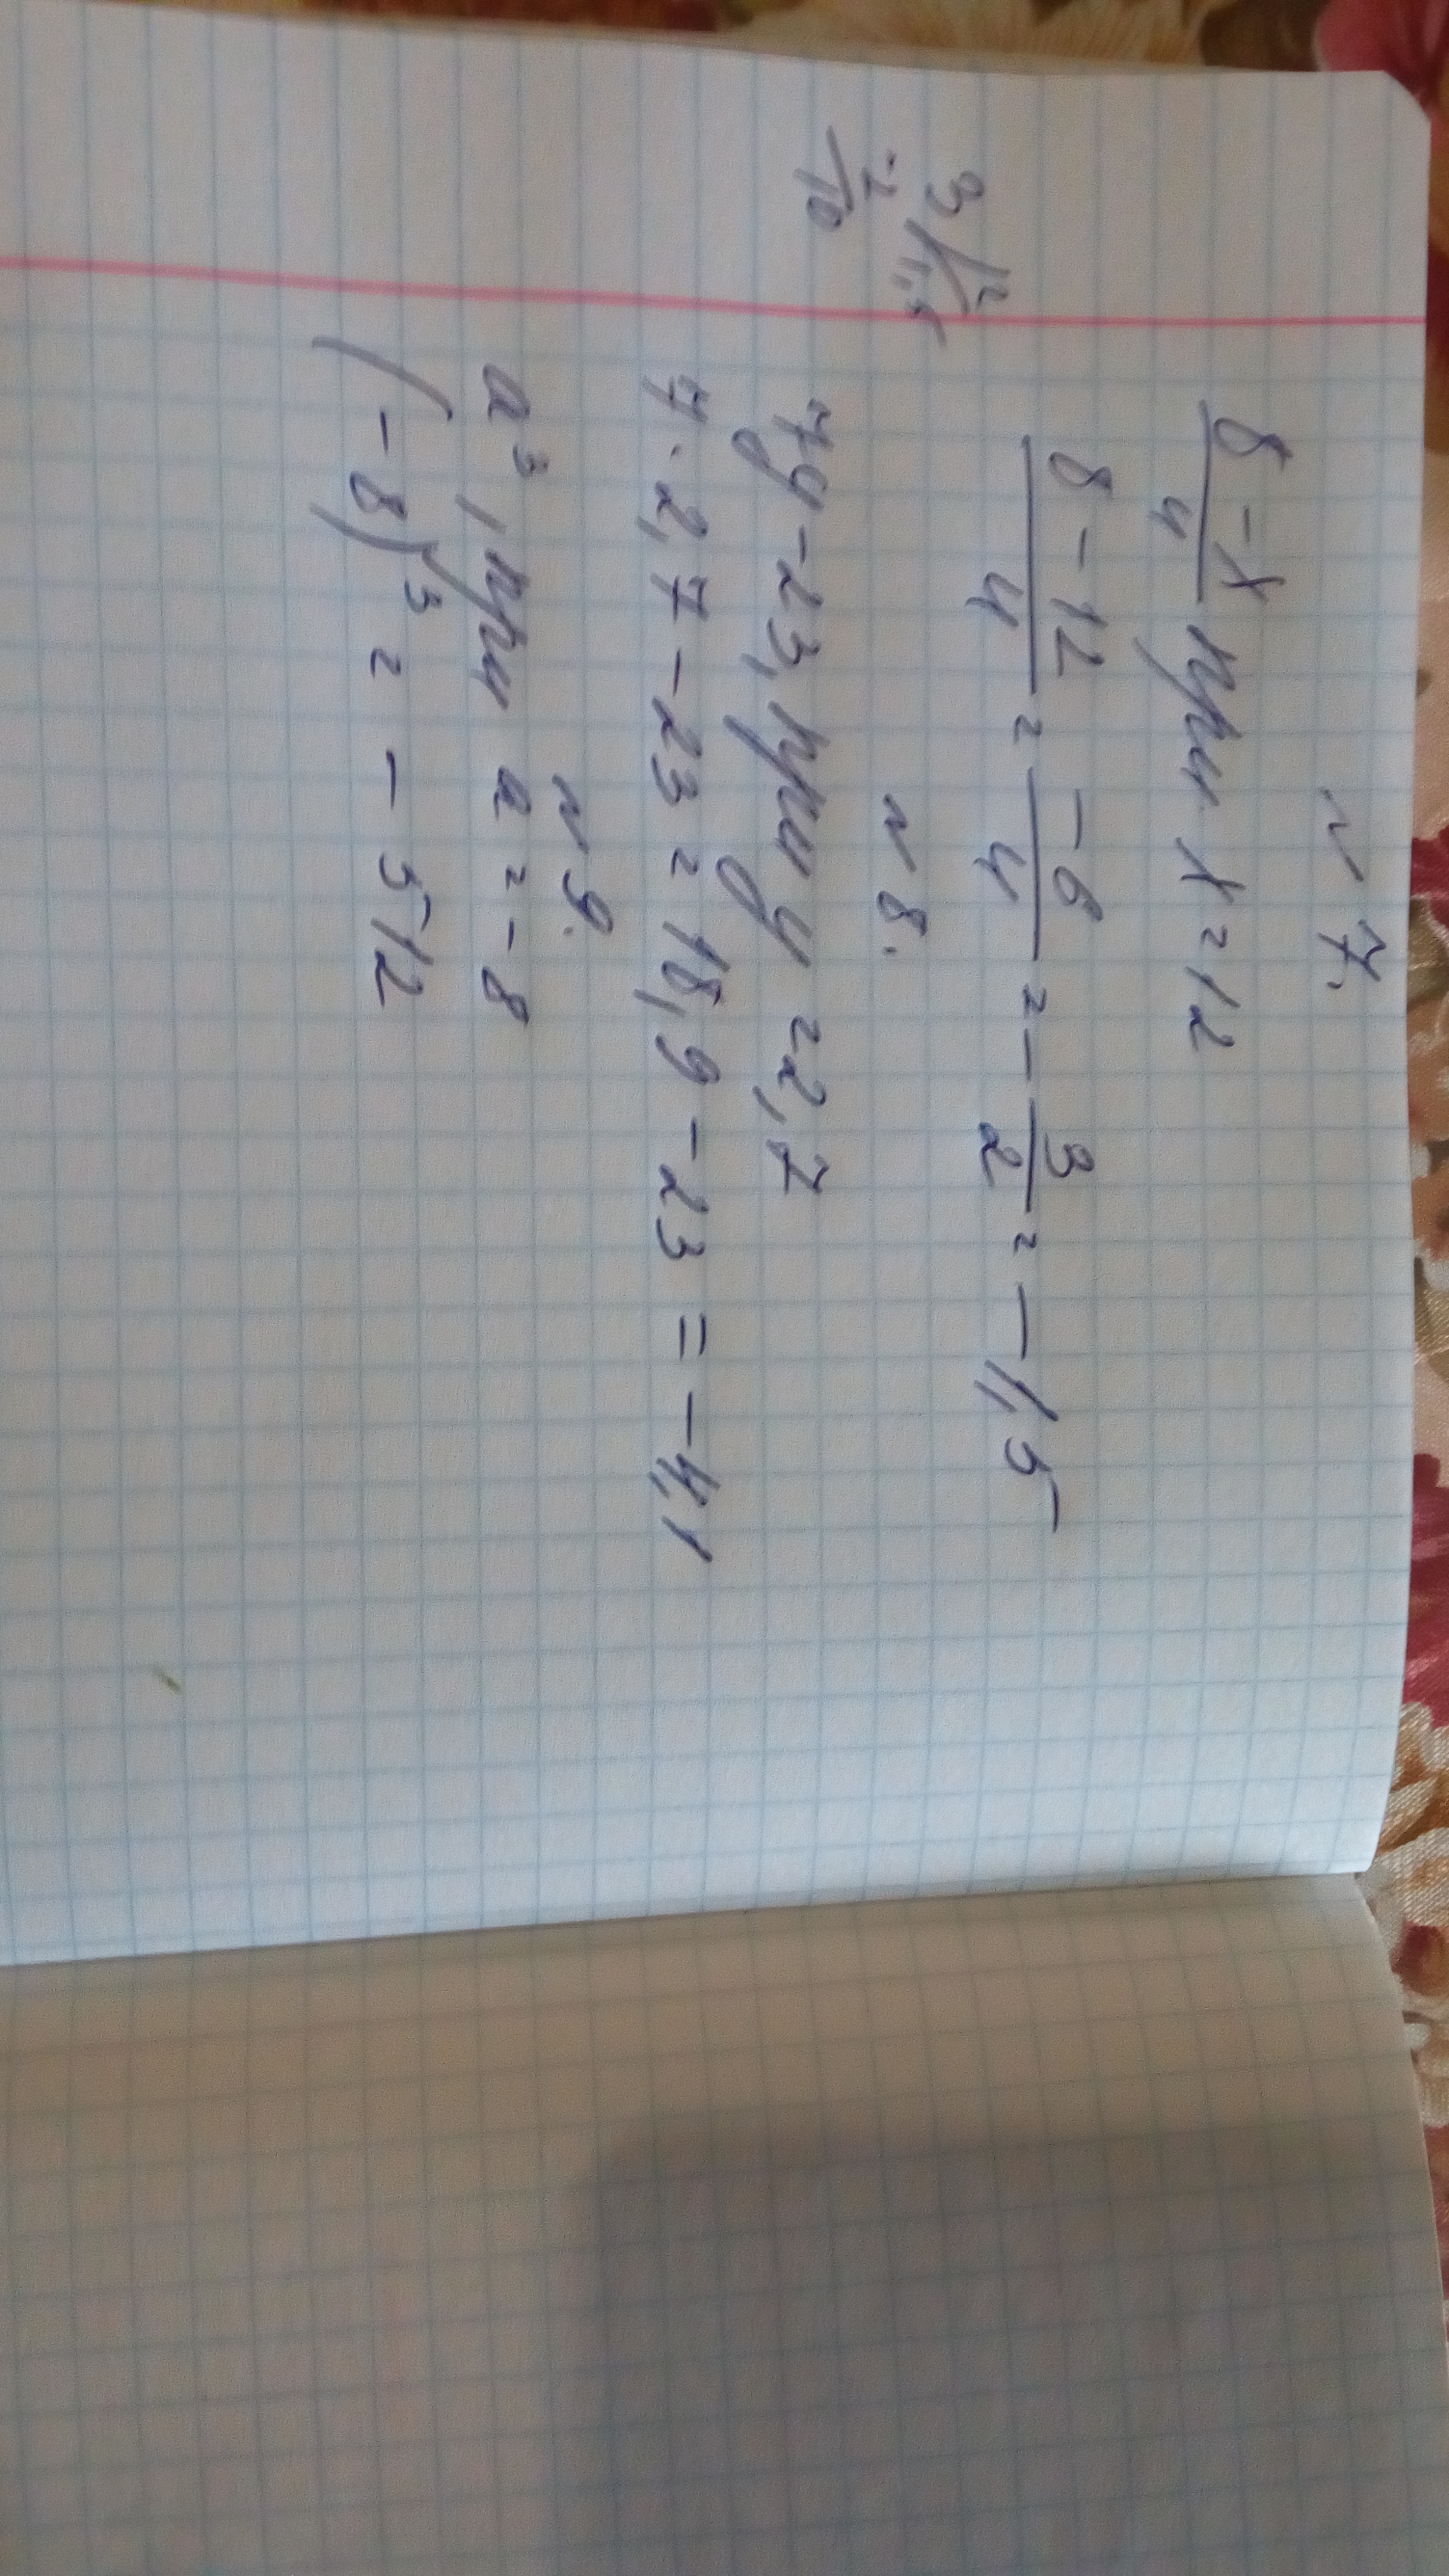 № 7.
8-x/4 при x=12
8-12/4 = -6/4 = -3/2 = -1,5
3|2
-2 1,5
10
№ 8.
7y-23, при y=2,7
7·2,7-23=18,9-23=-4,1
№ 9.
a³, при a=-8
(-8)³=-512